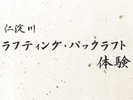 仁淀川
ラフティング・パックラフト
体験